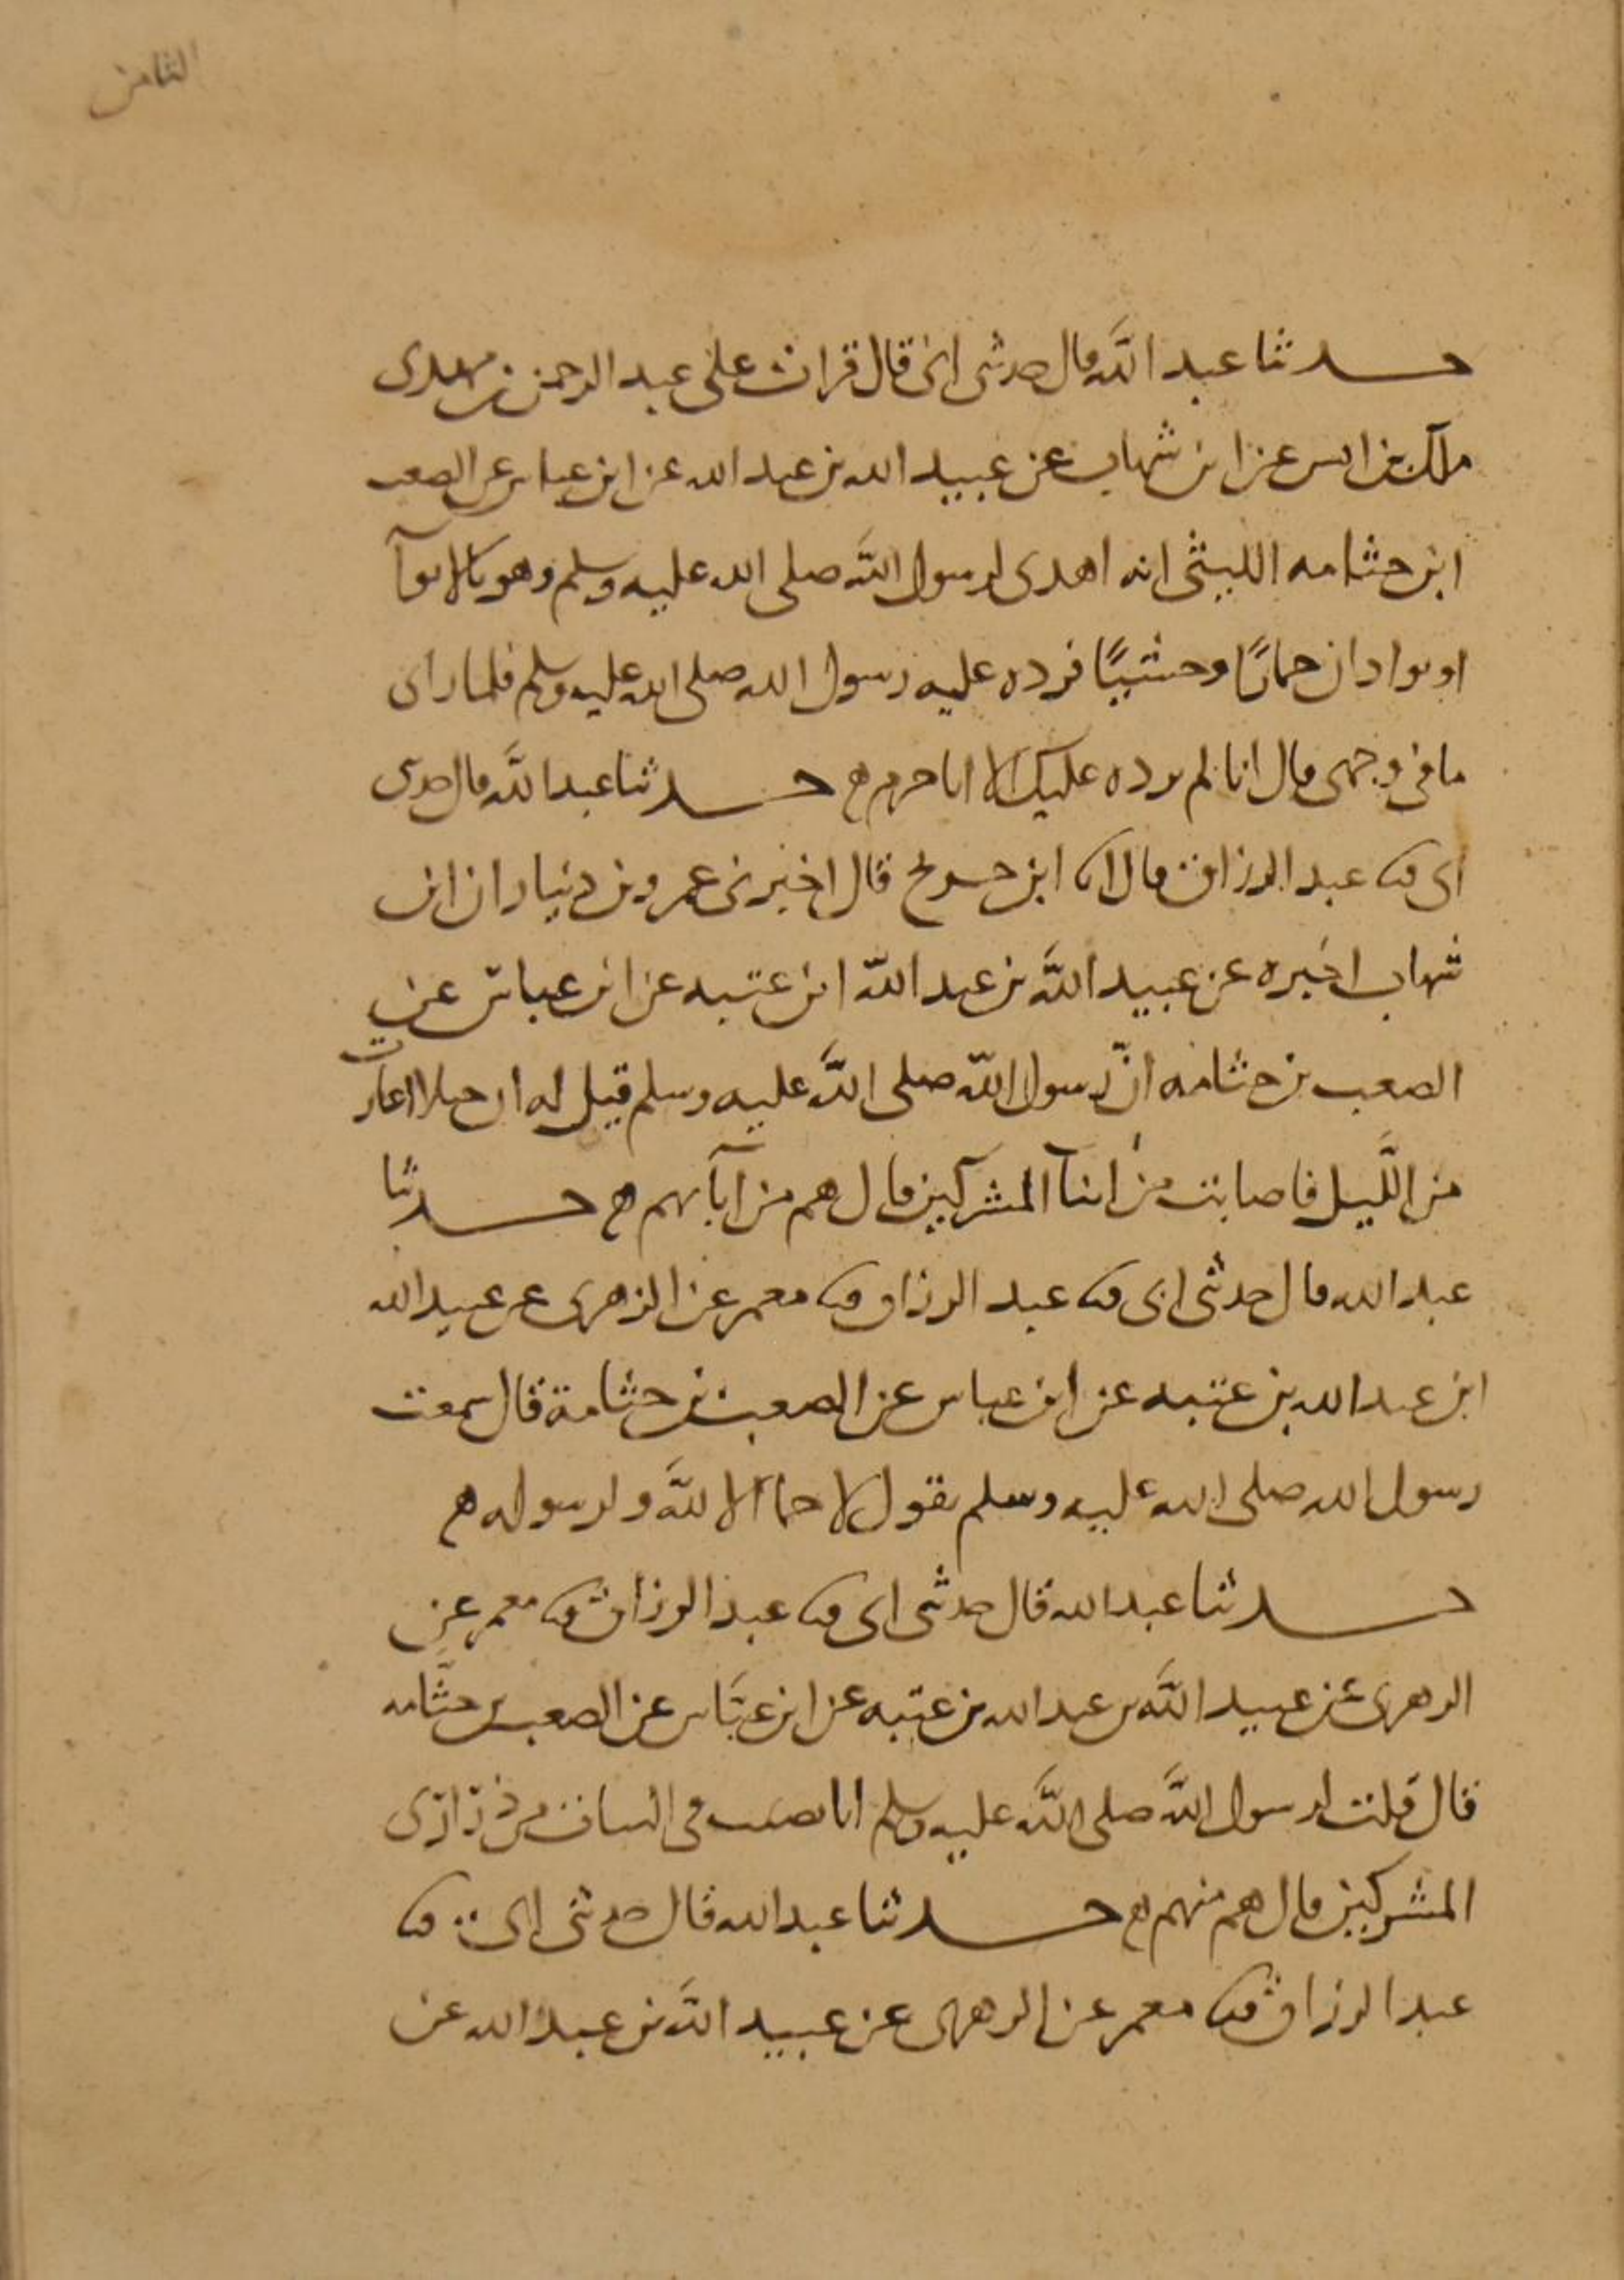 الثامن
حدثنا عبد الله قال حدثنى ابى قال قرات على عبد الرحمن بن مهدى
ملك بن انس عن ابن شهاب عن عبيد الله بن عبد الله عن ابن عباس عن الصعب
ابن جثامه الليثى انه اهدى لرسول الله صلى الله عليه وسلم وهو بالابوآ
او بوادان حمارًا وحشيًا فرده عليه رسول الله صلى الله عليه وسلم فلما راى
ما فى وجهى قال انا لم نرده عليك الا انا حرم ه حدثنا عبد الله قال حدثنى
ابى ثنا عبد الرزاق قال انا ابن جريج قال اخبرنى عمرو بن دينار ان ابن
شهاب اخبره عن عبيد الله بن عبد الله ابن عتبه عن ابن عباس عن
الصعب بن جثامه انّ رسول الله صلى الله عليه وسلم قيل له ان خيلا اغارت
من الليل فاصابت من ابنآ المشركين قال هم من آبآيهم ه حدثنا
عبد الله قال حدثنى ابى ثنا عبد الرزاق ثنا معمر عن الزهرى عن عبيد الله
ابن عبد الله بن عتبه عن ابن عباس عن الصعب بن جثامة قال سمعت
رسول الله صلى الله عليه وسلم يقول لا حما الا لله ولرسوله ه
حدثنا عبد الله قال حدثنى ابى ثنا عبد الرزاق ثنا معمر عن
الزهرى عن عبيد الله بن عبد الله بن عتبه عن ابن عبّاس عن الصعب بن جثّامه
قال قلت لرسول الله صلى الله عليه وسلم انا نصيب فى البيات من ذرارى
المشركين قال هم منهم ه حدثنا عبد الله قال حدثنى ابى ثنا
عبد الرزاق ثنا معمر عن الزهرى عن عبيد الله بن عبد الله عن